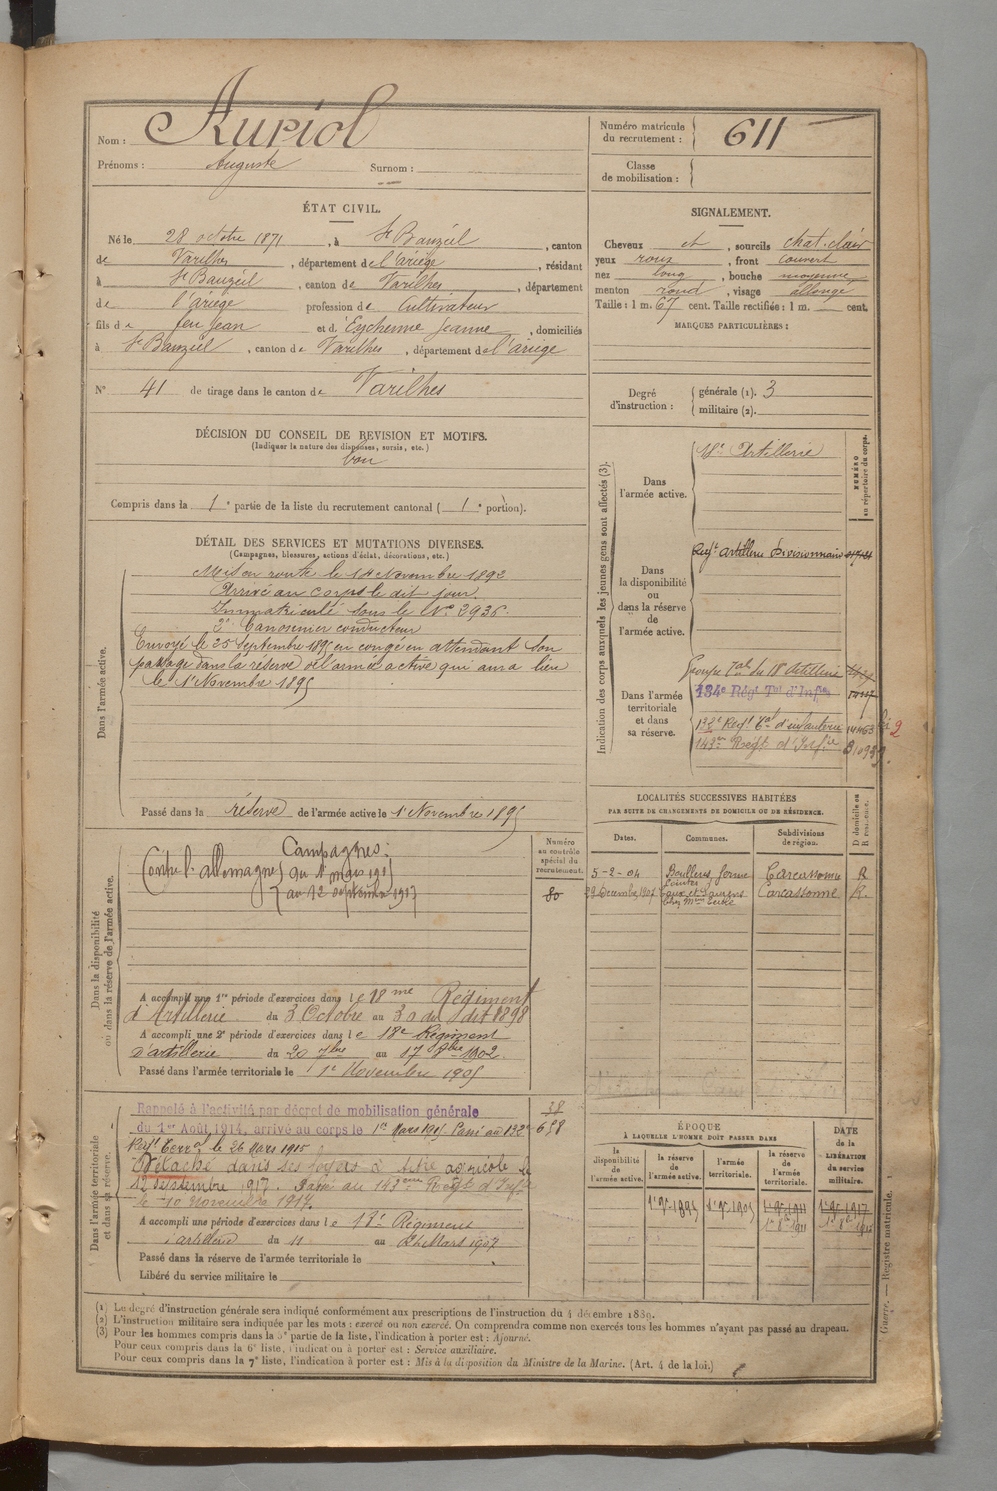 Nom : Auriol
Prénoms : Auguste Surnom :
Numéro matricule du recrutement : 611
Classe de mobilisation :
ÉTAT CIVIL.
Né le 28 octobre 1871, à St Bauzeil, canton
de Varilhes, département de l'ariège, résidant
à St Bauzeil, canton de Varilhes, département
de l'ariège profession de Cultivateur
fils de feu Jean et d' Eychenne Jeanne, domiciliés
à St Bauzeil, canton de Varilhes, département de l'ariège
N° 41 de tirage dans le canton de Varilhes
SIGNALEMENT.
Cheveux et, sourcils chat. clair
yeux roux, front couvert
nez long, bouche moyenne
menton rond, visage allongé
Taille : 1 m. 67 cent. Taille rectifiée : 1 m. cent.
MARQUES PARTICULIÈRES :
Degré d'instruction : générale (1). 3
militaire (2).
DÉCISION DU CONSEIL DE REVISION ET MOTIFS.
(Indiquer la nature des dispenses, sursis, etc.)
bon
Compris dans la 1e partie de la liste du recrutement cantonal (1e portion).
DÉTAIL DES SERVICES ET MUTATIONS DIVERSES.
(Campagnes, blessures, actions d'éclat, décorations, etc.)
Dans l'armée active.
Mis en route le 14 Novembre 1892
Arrivé au corps le dit jour
Immatriculé sous le N° 2936
2e Canonnier conducteur
Envoyé le 25 Septembre 1895 en congé en attendant son
passage dans la réserve de l'armée active qui aura lieu
le 1r Novembre 1895
Passé dans la réserve de l'armée active le 1r Novembre 1895
Indication des corps auxquels les jeunes gens sont affectés (3).
NUMÉRO au répertoire du corps.
Dans l'armée active.
18e Artillerie
Dans la disponibilité ou dans la réserve de l'armée active.
Regt artillerie Divisionnaire
Dans l'armée territoriale et dans sa réserve.
Groupe Tal du 18e Artillerie
134e Régt Tal d'Infie
132e Regt Tal d'infanterie
143me Régt d'Infie
LOCALITÉS SUCCESSIVES HABITÉES
PAR SUITE DE CHANGEMENTS DE DOMICILE OU DE RÉSIDENCE.
Dates. Communes. Subdivisions de région. D domicile ou R résidence.
5-2-04 Carcassonne R
Décembre 1907 Carcassonne R.
Dans la disponibilité ou dans la réserve de l'armée active.
Numéro au contrôle spécial du recrutement.
80
Campagnes :
Contre l'allemagne du 1r mars 1915
au 12 septembre 1917
A accompli une 1re période d'exercices dans le 18me Régiment
d'Artillerie du 3 Octobre au 30 du dit 1898
A accompli une 2e période d'exercices dans le 18e Régiment
d'artillerie du 20 au 17 1902
Passé dans l'armée territoriale le 1r Novembre 1905
Dans l'armée territoriale et dans sa réserve.
38
658
Rappelé à l'activité par décret de mobilisation générale
du 1er Août 1914, arrivé au corps le 1er Mars 1915. Passé au 132e
Regt Terral le 26 Mars 1915.
Détaché dans ses foyers à titre agricole le
12 septembre 1917. Passé au 143eme Régt d'Infie
le 10 Novembre 1917.
A accompli une période d'exercices dans le 18e Régiment
d'artillerie du 11 au 24 Mars 1907
Passé dans la réserve de l'armée territoriale le
Libéré du service militaire le
ÉPOQUE
À LAQUELLE L'HOMME DOIT PASSER DANS
la disponibilité de l'armée active. la réserve de l'armée active. l'armée territoriale. la réserve de l'armée territoriale.
DATE de la LIBÉRATION du service militaire.
1r 9e 1895 1r 9e 1905 1r 9e 1911 1r 9e 1917
(1) Le degré d'instruction générale sera indiqué conformément aux prescriptions de l'instruction du 4 décembre 1889.
(2) L'instruction militaire sera indiquée par les mots : exercé ou non exercé. On comprendra comme non exercés tous les hommes n'ayant pas passé au drapeau.
(3) Pour les hommes compris dans la 5e partie de la liste, l'indication à porter est : Ajourné.
Pour ceux compris dans la 6e liste, l'indication à porter est : Service auxiliaire.
Pour ceux compris dans la 7e liste, l'indication à porter est : Mis à la disposition du Ministre de la Marine. (Art. 4 de la loi.)
Guerre. — Registre matricule.